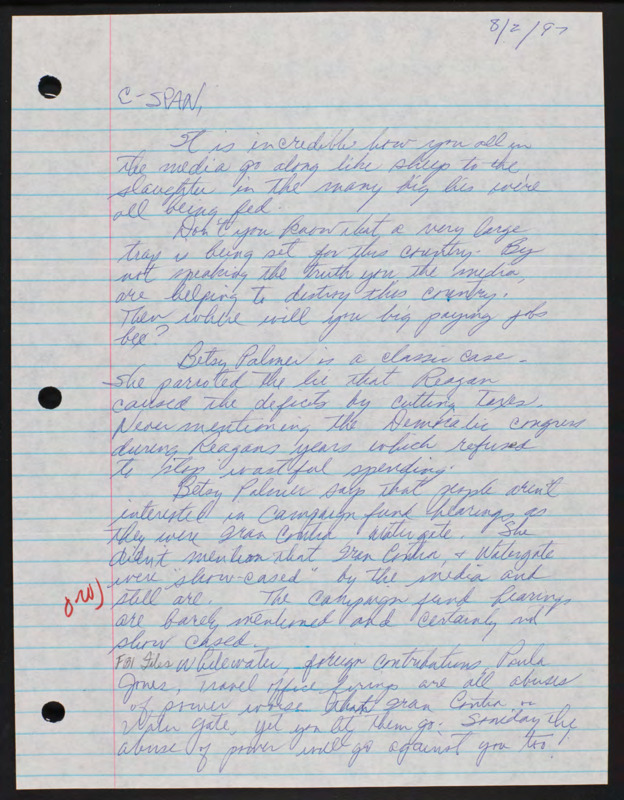 8/2/97
C-SPAN,
It is incredible how you all in
the media go along like sheep to the
slaughter in the many big lies we're
all being fed.
Don't you know that a very large
trap is being set for this country. By
not speaking the truth you, the media,
are helping to destroy this country.
Then where will you big paying jobs
be?
Betsy Palmer is a classic case.
She parroted the lie that Reagan
caused the deficits by cutting taxes.
Never mentioning the Democratic Congress
during Reagans years which refused
to stop wasteful spending.
Betsy Palmer says that people aren't
interested in Campaign fund hearings as
they were Iran Contra Watergate. She
didn't mention that Iran Contra, & Watergate
were "show-cased" by the media and
still are. The campaign fund hearings
are barely mentioned and certainly not
show cased.
FBI Files Whitewater, foreign contributions, Paula
Jones, travel office firings are all abuses
of power worse than Iran Contra or
Water gate, yet you let them go. Someday the
abuse of power will go against you too!